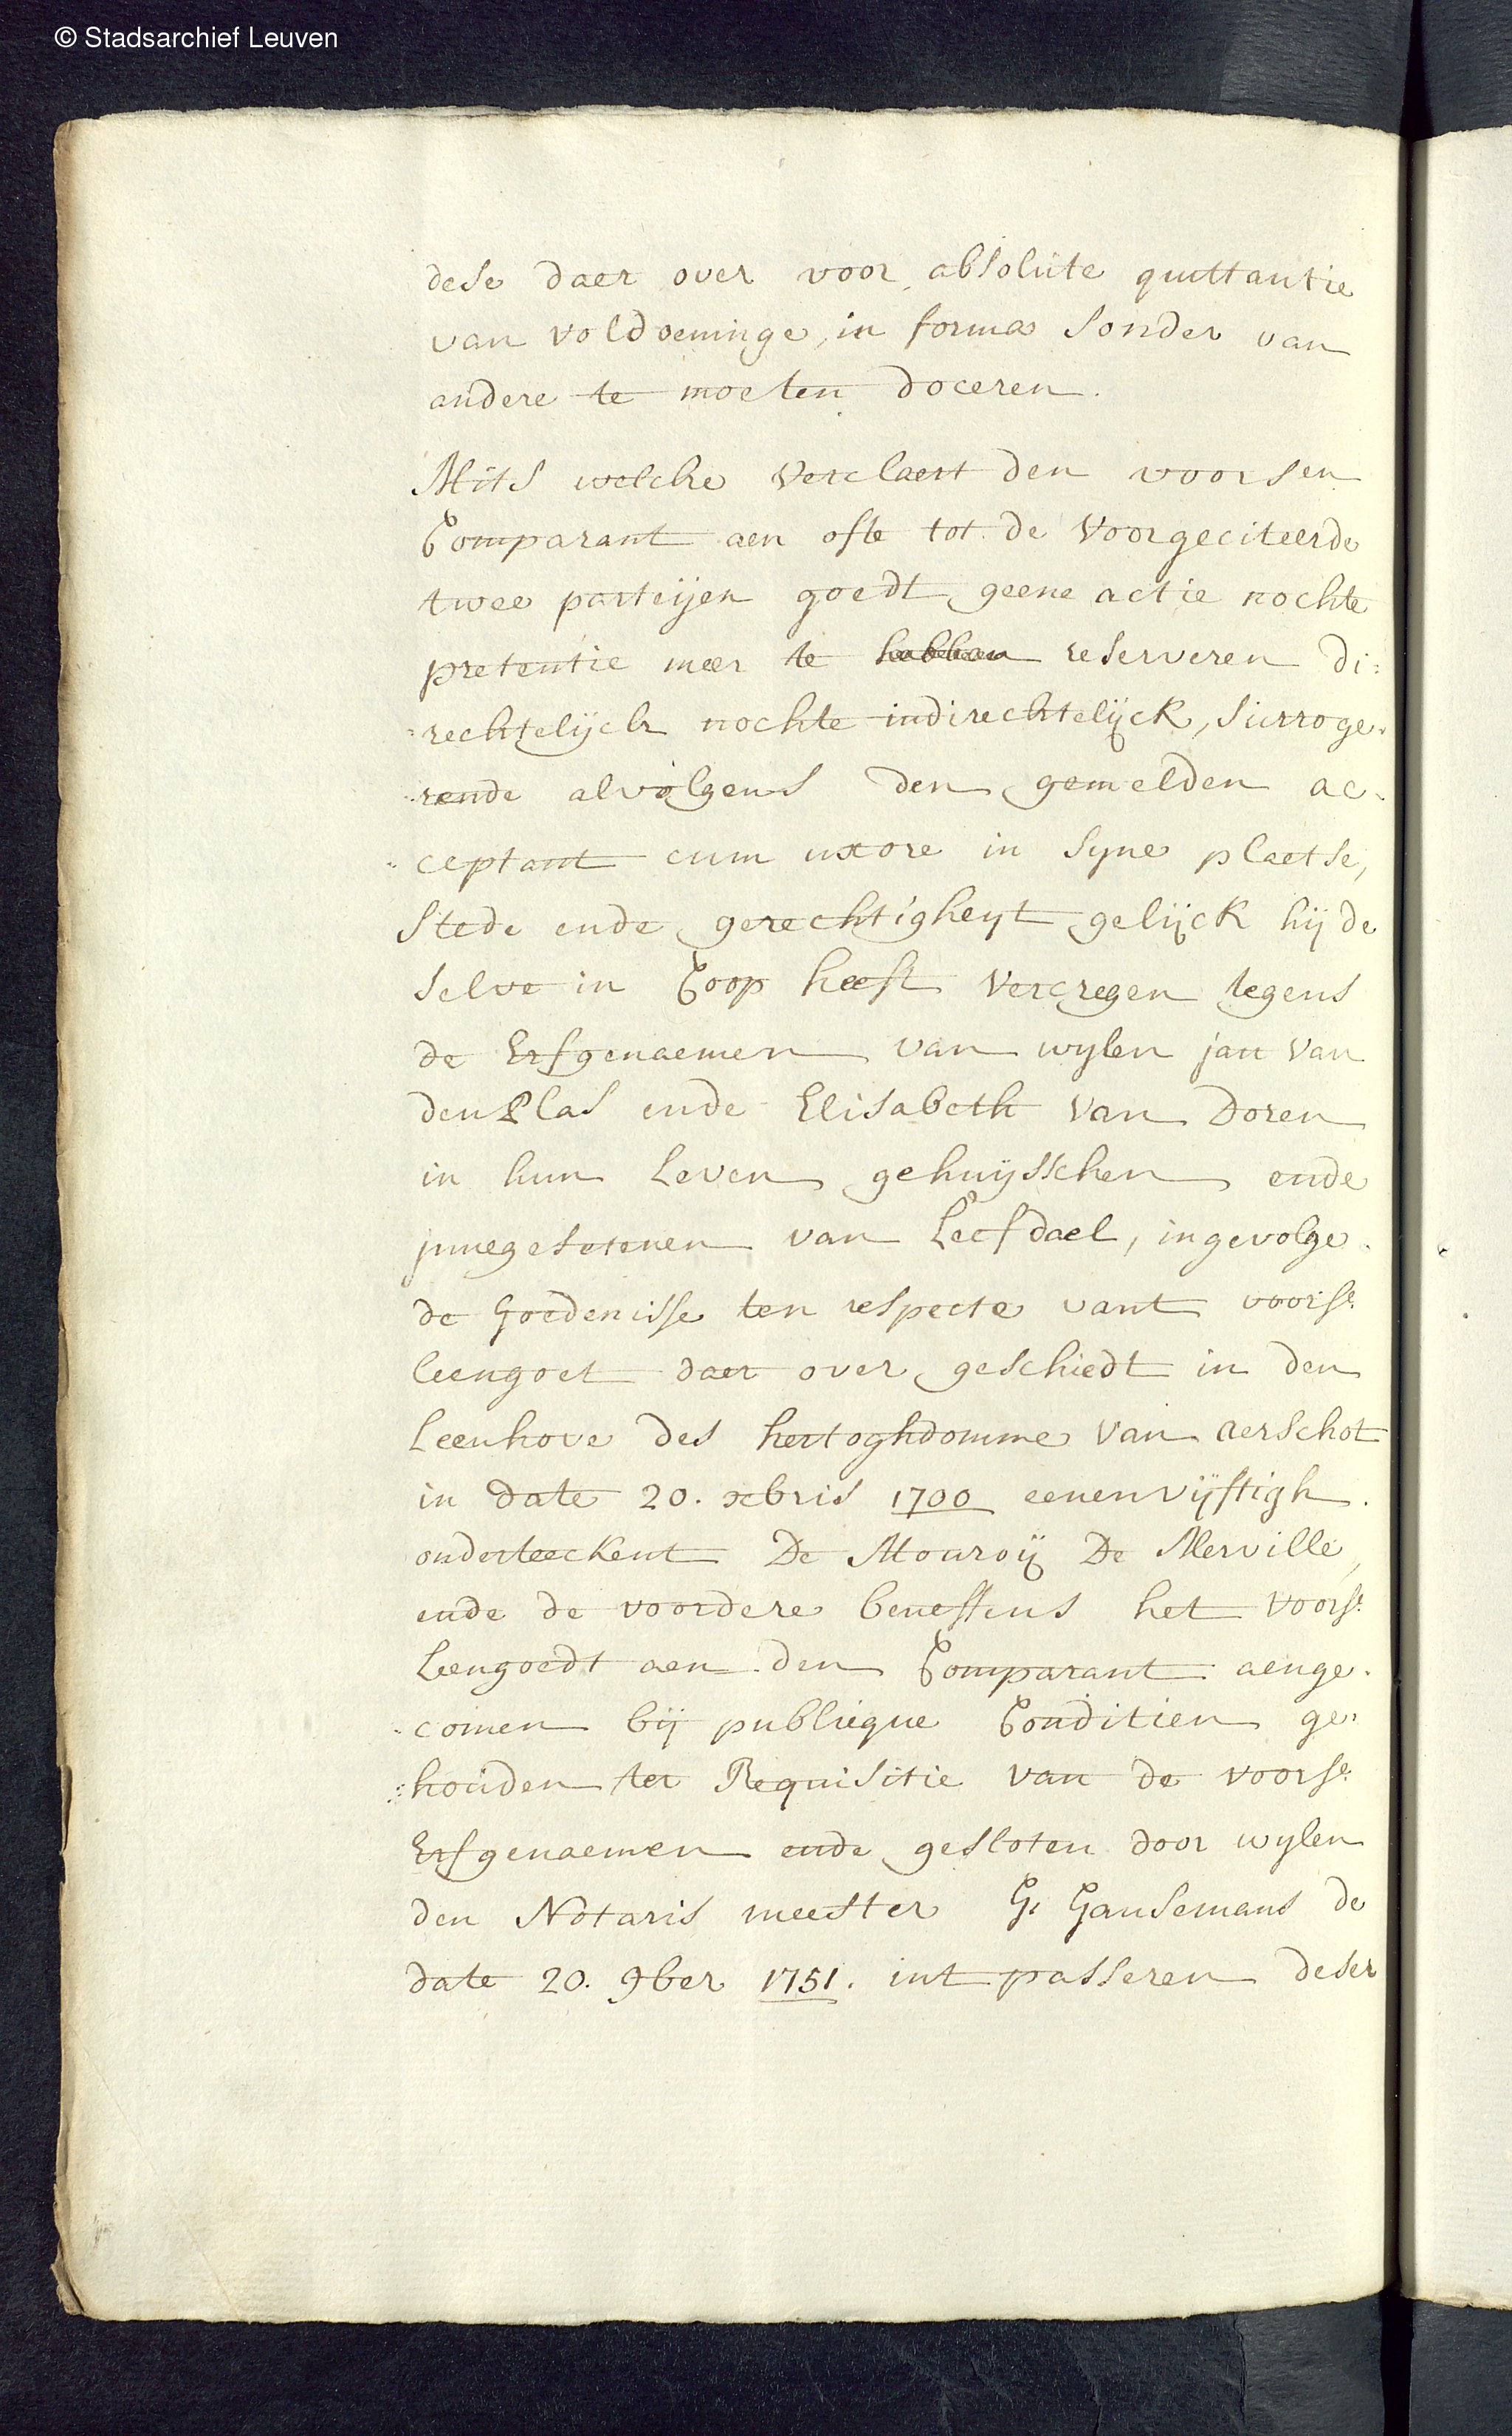 © Stadsarchief Leuven
dese daer over voor absolute quittantie
van voldoeninge, in forma sonder van
andere te moeten doceren.
Mits welcke verclaert den voorsen
Comparant aen ofte tot de voorgeciteerde
twee parteijen goedt geene actie nochte
pretentie meer te hebben reserveren di:
:rechtelijck nochte indirechtelijck, surroge:
:rende alvolgens den gemelden ac:
:ceptant cum uxore in syne plaetse,
stede ende gerechtigheyt gelijck hij de
selve in Coop heeft vercregen tegens
de Erfgenaemen van wylen jan van
den Plas ende Elisabeth van Doren
in hun Leven gehuijsschen ende
innegesetenen van Leefdael, ingevolge
de Goedenisse ten respecte vant voorse
leengoet daer over geschiedt in den
Leenhove des hertoghdomme van aerschot
in date 20. xbris 1700 eenenvijftigh.
onderteeckent De Mouroij De Merville,
ende de voordere beneffens het voorse
Leengoedt aen den Comparant aenge:
:comen bij publieque Conditien ge:
:houden ter Requisitie van de voorse
Erfgenaemen ende gesloten door wylen
den Notaris meester G. Gansemans de
date 20. 9ber 1751. int passeren deser